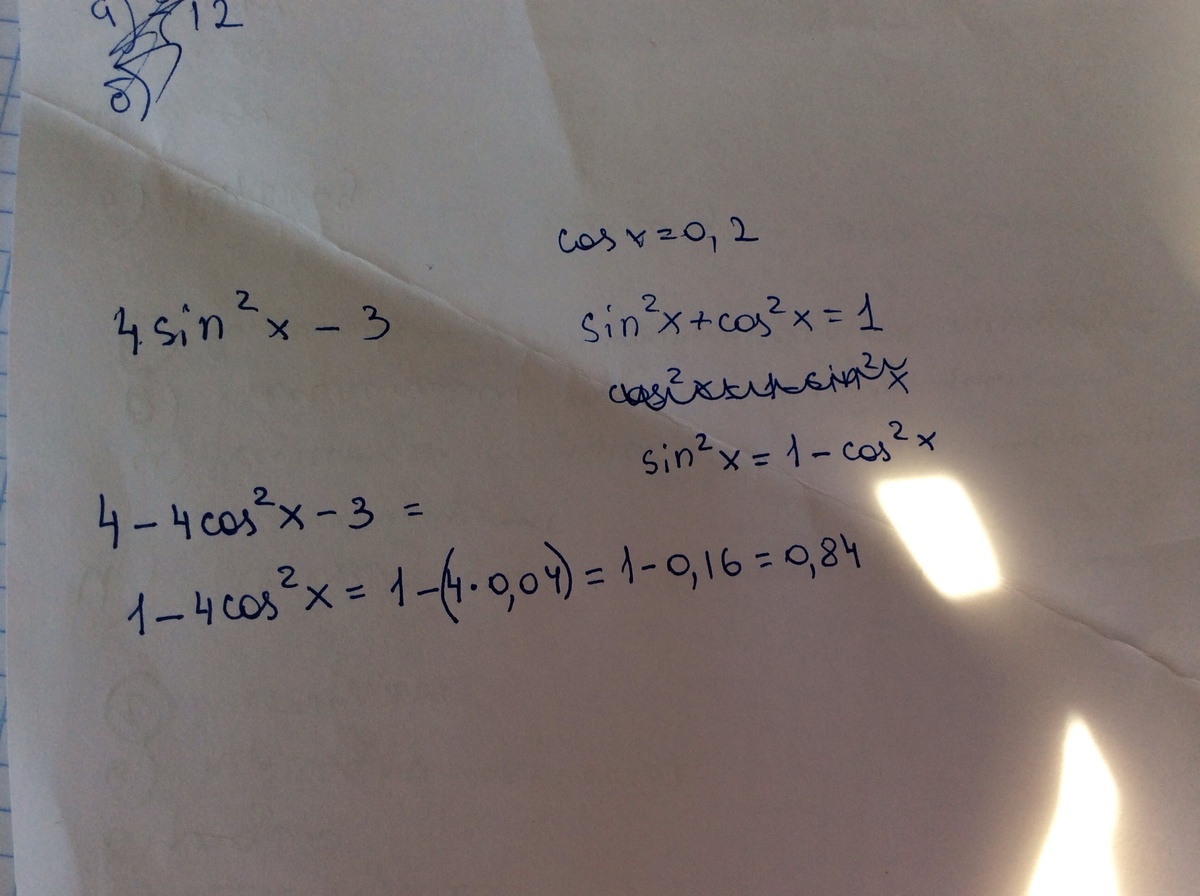 а) 12
б)
cos x = 0,2
4 sin²x - 3
sin²x + cos²x = 1
sin²x = 1 - cos²x
4 - 4cos²x - 3 =
1 - 4cos²x = 1 - (4·0,04) = 1 - 0,16 = 0,84